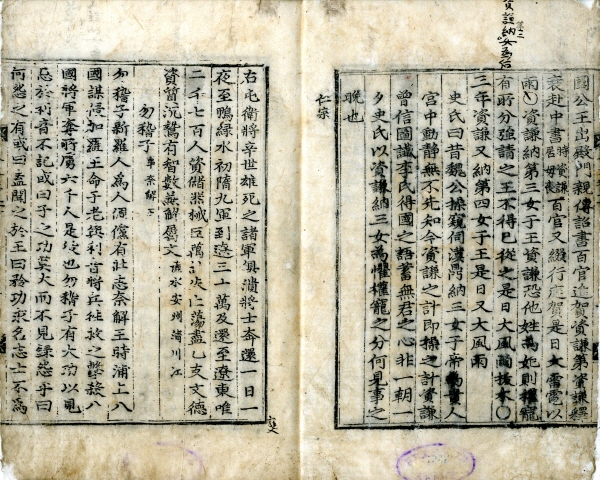 資謙納女爲后
國公王出殿門親傳詔書百官進賀資謙第資謙釋
衰赴中書時資謙居母喪百官又綴行庭賀是日大雷電以
雨○資謙納第三女于王資謙恐他姓爲妃則權寵
有所分強請之王不得已從之是日大風雨拔木○
三年資謙又納第四女于王是日又大風雨
史氏曰昔魏公操窺伺漢鼎納三女子帝爲貴人
宮中動靜無不先知今資謙之計即操之計資謙
曾信圖讖李氏得國之語蓄無君之心非一朝一
夕史氏以資謙納三女爲懼權寵之分何見事之
晩也
仁宗
右屯衛將辛世雄死之諸軍俱潰將士奔還一日一
夜至鴨綠水初隋九軍到遼三十萬及還至遼東唯
二千七百人資儲器械巨萬計失亡蕩盡乙支文德
資質沉鷙有智數兼解屬文 薩水安州淸川江
勿稽子 事奈解王
勿稽子新羅人爲人倜儻有壯志奈解王時浦上八
國謀侵加羅王命子老與利音將兵往救之擊殺八
國將軍奪所虜六千人是役也勿稽子有大功以見
惡於利音不記或曰子之功莫大而不見錄怨乎曰
何怨之有或曰盍聞之於王曰矜功求名志士不爲